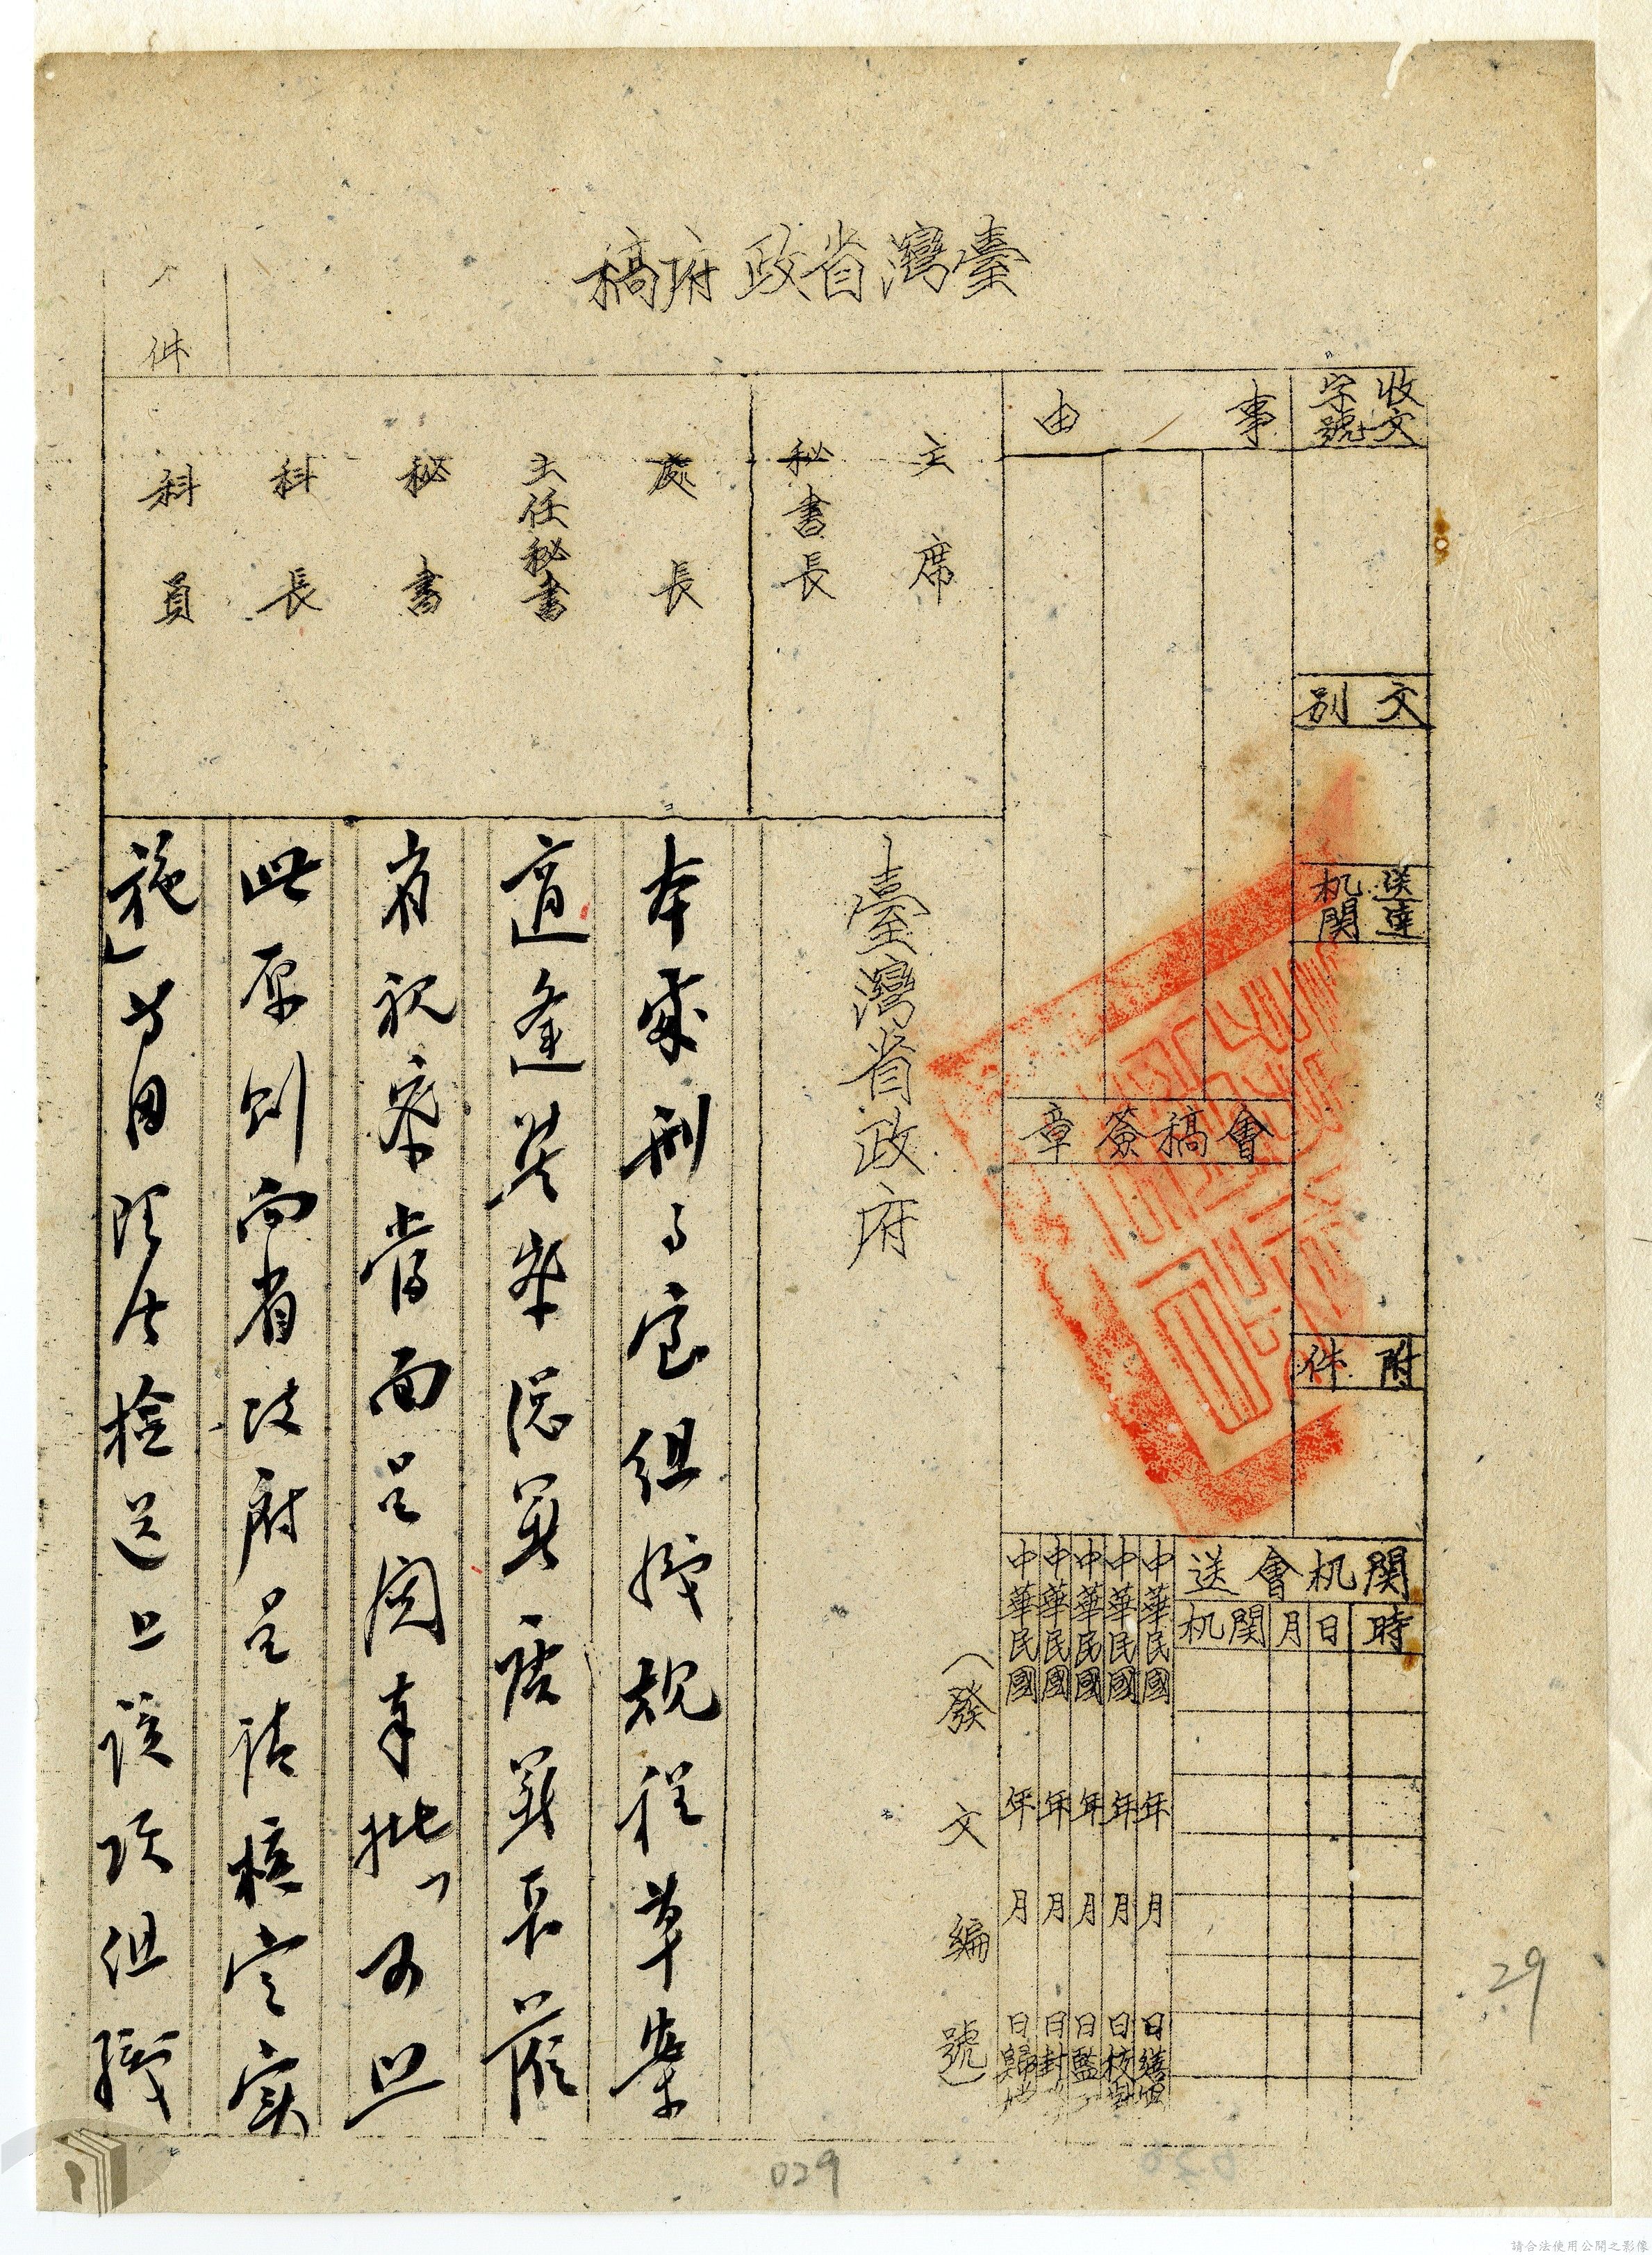 臺灣省政府稿
件
收文字號
事由
文別
送達机関
附件
會稿簽章
送會机関
机関月日時
中華民國 年 月 日繕寫
中華民國 年 月 日校對
中華民國 年 月 日監
中華民國 年 月 日封
中華民國 年 月 日歸檔
(發文編號)
主席
秘書長
處長
主任秘書
秘書
科長
科員
臺灣省政府
本處刑事室組織規程草案
適逢其葉滋
省視察當面呈閱奉批「可照
此原則向省政府呈請核定實
施」等因隨後檢送上該項組織
29
029
030
請合法使用公開之影像